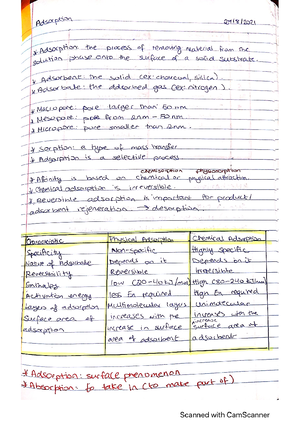 Adsorption
27/8/2021
* Adsorption: the process of removing material from the
solution phase onto the surface of a solid substrate.
* Adsorbent: the solid (ex: charcoal, silica).
* Adsorbate: the adsorbed gas (ex: nitrogen).
* Macropore: pore larger than 50nm
* Mesopore: pore from 2nm – 50nm
* Micropore: pore smaller than 2nm.
* Sorption: a type of mass transfer
* Adsorption is a selective process
chemisorption physisorption
* Affinity is based on chemical or physical attraction.
* Chemical adsorption is irreversible.
* Reversible adsorption is important for product/
adsorbent regeneration → desorption.
Characteristic Physical Adsorption Chemical Adsorption
Specificity Non-specific Highly specific
Nature of Adsorbate Depends on it Depends on it
Reversibility Reversible Irreversible
Enthalpy low (20-40kJ/mol) High (80-240kJ/mol)
Activation energy less Ea required High Ea required
Layers of adsorption Multimolecular layers Unimolecular
Surface area of Increases with the Increases with the
adsorption increase in surface increase surface area of
area of adsorbent adsorbent
* Adsorption: surface phenomenon
* Absorption: to take in (to make part of)
Scanned with CamScanner